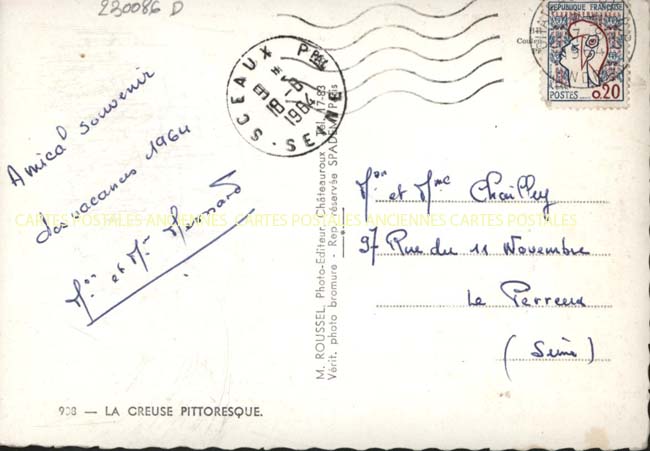 230086 D
Amical souvenir
des vacances 1964
Mr et Mme
SCEAUX PPAL
18-8
1964
SEINE
REPUBLIQUE FRANÇAISE
POSTES 0,20
M. ROUSSEL, Photo-Editeur, Châteauroux - Tél. 17-83
Vérit. photo bromure - Rep. réservée SPADEM Paris
Mon et Mme Chailley
97 Rue du 11 Novembre
Le Perreux
(Seine)
CARTES POSTALES ANCIENNES CARTES POSTALES ANCIENNES CARTES POSTALES ANCIENNES
908 — LA CREUSE PITTORESQUE.